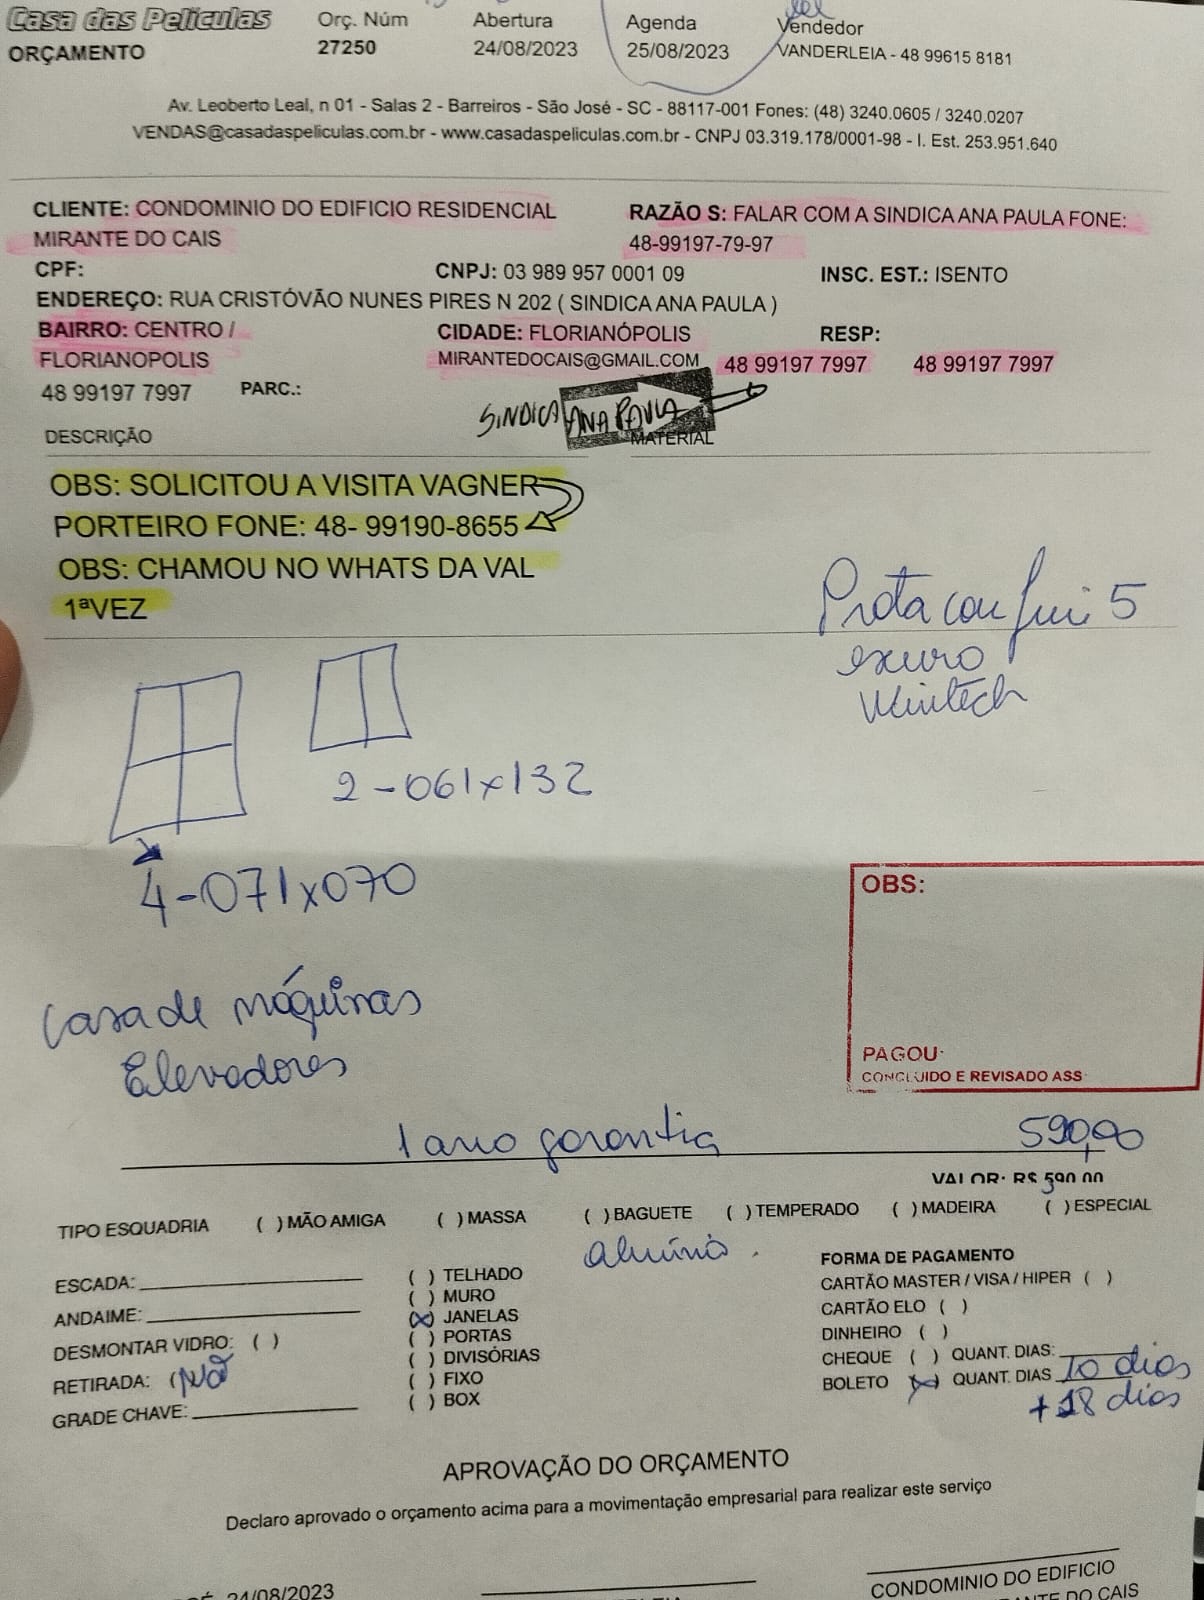 Casa das Películas
ORÇAMENTO
Orç. Núm
27250
Abertura
24/08/2023
Agenda
25/08/2023
Vendedor
VANDERLEIA - 48 99615 8181
Av. Leoberto Leal, n 01 - Salas 2 - Barreiros - São José - SC - 88117-001 Fones: (48) 3240.0605 / 3240.0207
VENDAS@casadaspeliculas.com.br - www.casadaspeliculas.com.br - CNPJ 03.319.178/0001-98 - I. Est. 253.951.640
CLIENTE: CONDOMINIO DO EDIFICIO RESIDENCIAL
MIRANTE DO CAIS
RAZÃO S: FALAR COM A SINDICA ANA PAULA FONE:
48-99197-79-97
CPF:
CNPJ: 03 989 957 0001 09
INSC. EST.: ISENTO
ENDEREÇO: RUA CRISTÓVÃO NUNES PIRES N 202 ( SINDICA ANA PAULA )
BAIRRO: CENTRO /
FLORIANOPOLIS
CIDADE: FLORIANÓPOLIS
RESP:
MIRANTEDOCAIS@GMAIL.COM
48 99197 7997
48 99197 7997
48 99197 7997
PARC.:
SINDICA ANA PAULA
DESCRIÇÃO
MATERIAL
OBS: SOLICITOU A VISITA VAGNER
PORTEIRO FONE: 48- 99190-8655
OBS: CHAMOU NO WHATS DA VAL
1ªVEZ
Prata 5
escuro
Wintech
2-061x132
4-071x070
Casa de máquinas
Elevadores
OBS:
PAGOU:
CONCLUIDO E REVISADO ASS
1 ano garantia
590,00
VALOR: R$ 590.00
TIPO ESQUADRIA ( ) MÃO AMIGA ( ) MASSA ( ) BAGUETE ( ) TEMPERADO ( ) MADEIRA ( ) ESPECIAL
alumínio
ESCADA:
ANDAIME:
DESMONTAR VIDRO: ( )
RETIRADA: ( Não
GRADE CHAVE:
( ) TELHADO
( ) MURO
(x) JANELAS
( ) PORTAS
( ) DIVISÓRIAS
( ) FIXO
( ) BOX
FORMA DE PAGAMENTO
CARTÃO MASTER / VISA / HIPER ( )
CARTÃO ELO ( )
DINHEIRO ( )
CHEQUE ( ) QUANT. DIAS:
BOLETO (x) QUANT. DIAS 10 dias
+ 18 dias
APROVAÇÃO DO ORÇAMENTO
Declaro aprovado o orçamento acima para a movimentação empresarial para realizar este serviço
24/08/2023
CONDOMINIO DO EDIFICIO
DO CAIS